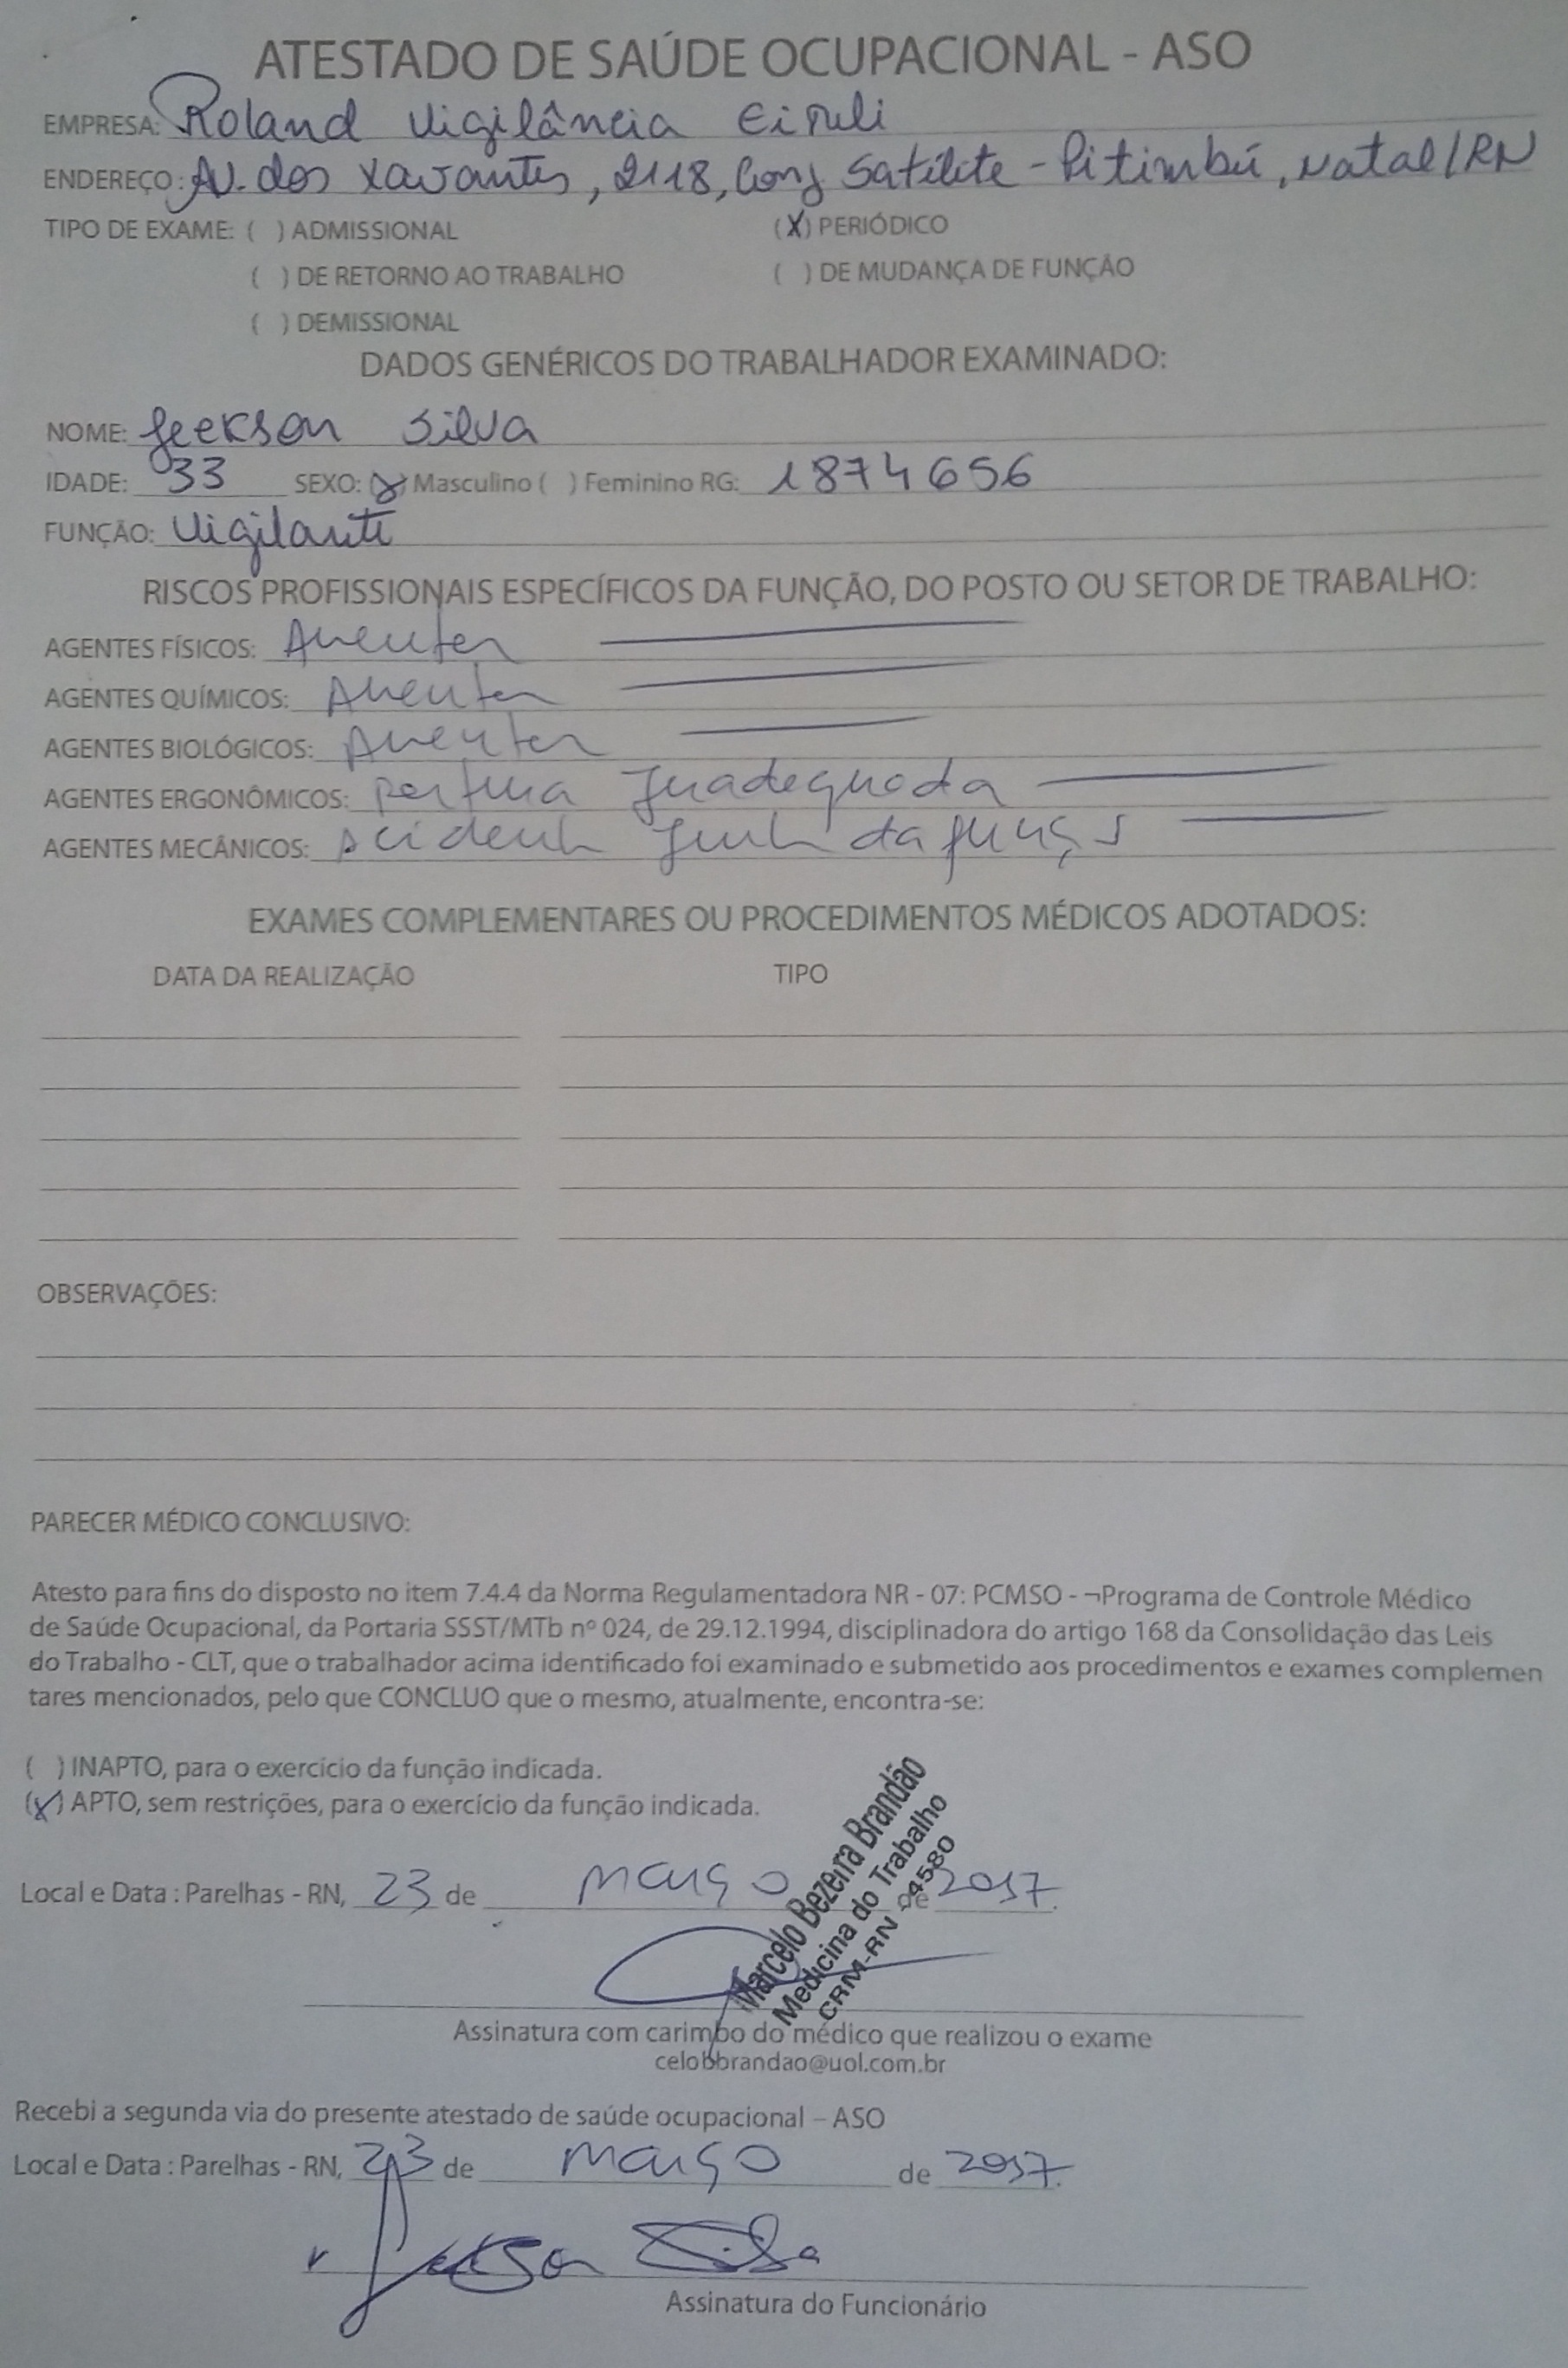 ATESTADO DE SAÚDE OCUPACIONAL - ASO
EMPRESA: Roland Vigilância Eireli
ENDEREÇO: Av. dos Xavantes, 2118, Conj Satélite - Pitimbú, Natal/RN
TIPO DE EXAME: ( ) ADMISSIONAL (X) PERIÓDICO
( ) DE RETORNO AO TRABALHO ( ) DE MUDANÇA DE FUNÇÃO
( ) DEMISSIONAL
DADOS GENÉRICOS DO TRABALHADOR EXAMINADO:
NOME: Jeekson Silva
IDADE: 33 SEXO: (X) Masculino ( ) Feminino RG: 1874656
FUNÇÃO: Vigilante
RISCOS PROFISSIONAIS ESPECÍFICOS DA FUNÇÃO, DO POSTO OU SETOR DE TRABALHO:
AGENTES FÍSICOS: Ausentes
AGENTES QUÍMICOS: Ausentes
AGENTES BIOLÓGICOS: Ausentes
AGENTES ERGONÔMICOS: Postura Inadequada
AGENTES MECÂNICOS: Acidente da função
EXAMES COMPLEMENTARES OU PROCEDIMENTOS MÉDICOS ADOTADOS:
DATA DA REALIZAÇÃO TIPO
OBSERVAÇÕES:
PARECER MÉDICO CONCLUSIVO:
Atesto para fins do disposto no item 7.4.4 da Norma Regulamentadora NR - 07: PCMSO - ¬Programa de Controle Médico
de Saúde Ocupacional, da Portaria SSST/MTb nº 024, de 29.12.1994, disciplinadora do artigo 168 da Consolidação das Leis
do Trabalho - CLT, que o trabalhador acima identificado foi examinado e submetido aos procedimentos e exames complemen
tares mencionados, pelo que CONCLUO que o mesmo, atualmente, encontra-se:
( ) INAPTO, para o exercício da função indicada.
(X) APTO, sem restrições, para o exercício da função indicada.
Local e Data : Parelhas - RN, 23 de março de 2017.
Marcelo Bezerra Brandão
Medicina do Trabalho
CRM-RN 4580
Assinatura com carimbo do médico que realizou o exame
celobbrandao@uol.com.br
Recebi a segunda via do presente atestado de saúde ocupacional – ASO
Local e Data : Parelhas - RN, 23 de março de 2017.
Jeekson Silva
Assinatura do Funcionário